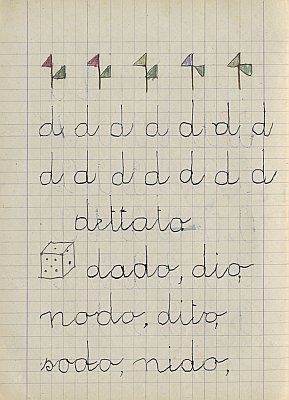 d d d d d d d
d d d d d d d
dettato
dado, dio,
nodo, dito,
sodo, nido,